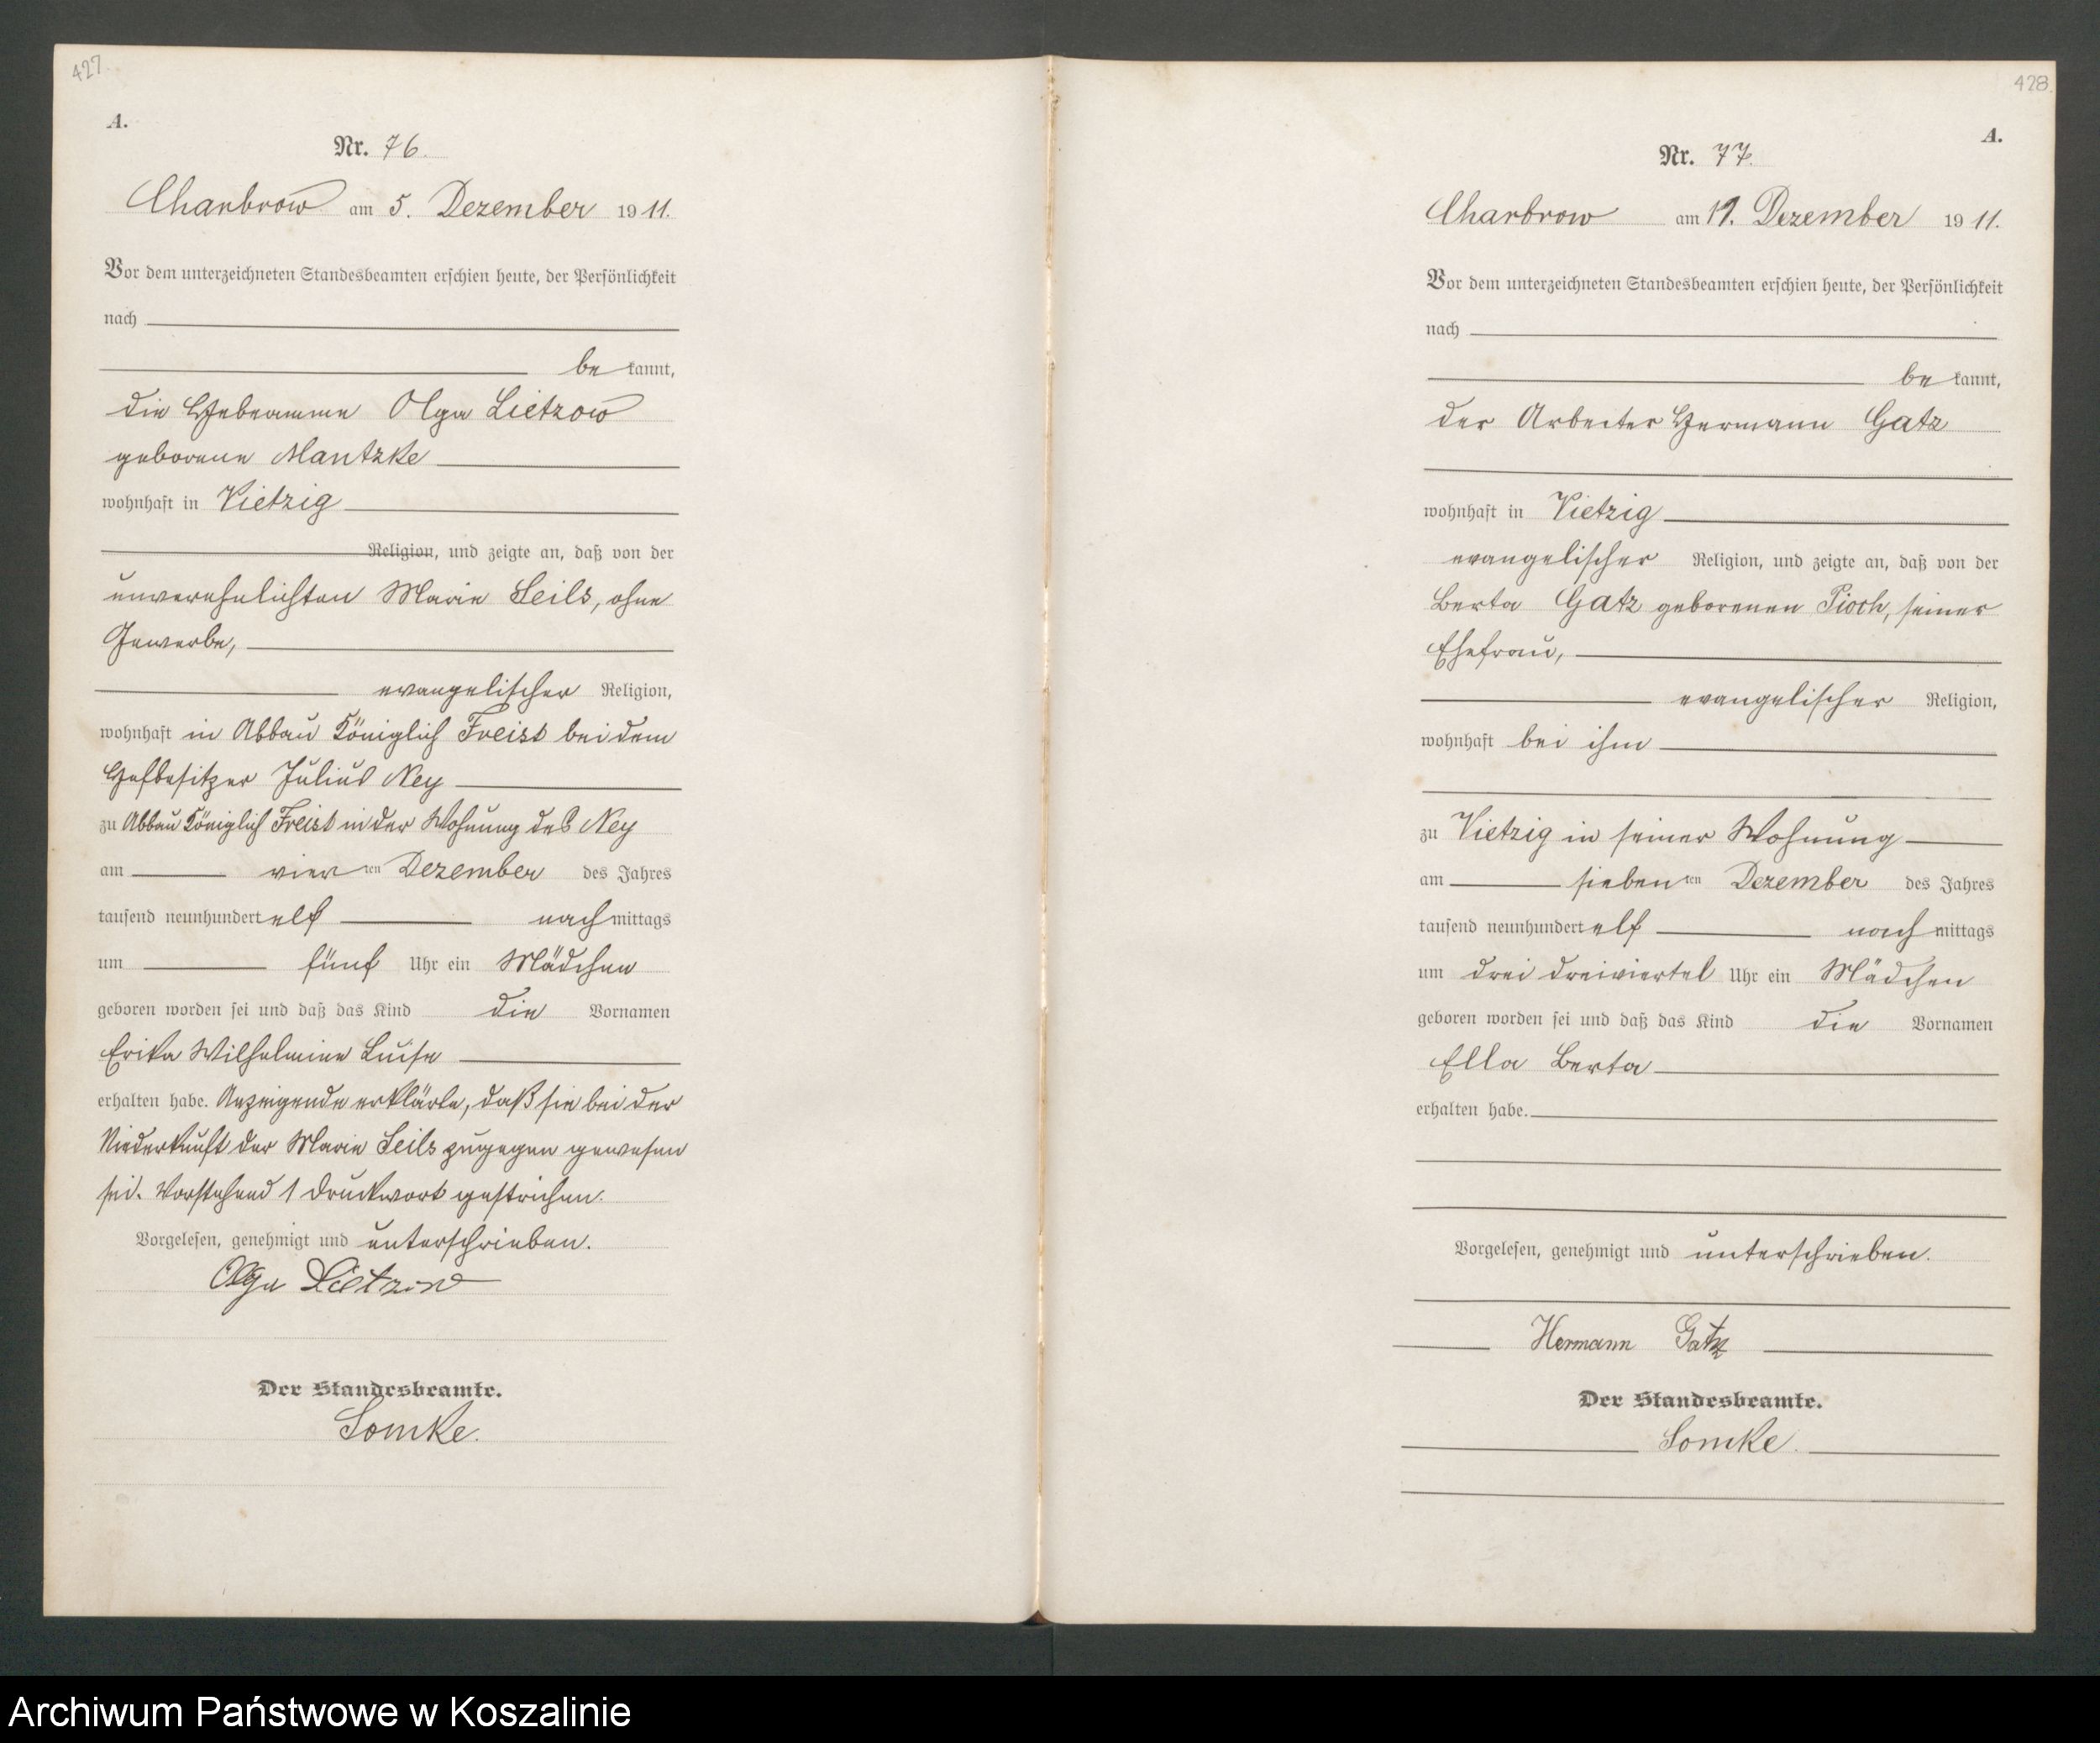 427.
A.
Nr. 76.
Charbrow am 5. Dezember 1911.
Vor dem unterzeichneten Standesbeamten erschien heute, der Persönlichkeit
nach
bekannt,
die Hebeamme Olga Lietzow
geborene Mantzke
wohnhaft in Vietzig
Religion, und zeigte an, daß von der
unverehelichten Marie Seils, ohne
Gewerbe,
evangelischer Religion,
wohnhaft in Abbau Königlich Freist bei dem
Hofbesitzer Julius Ney
zu Abbau Königlich Freist in der Wohnung des Ney
am vierten Dezember des Jahres
tausend neunhundert elf nachmittags
um fünf Uhr ein Mädchen
geboren worden sei und daß das Kind die Vornamen
Erika Wilhelmine Luise
erhalten habe. Anzeigende erklärte, daß sie bei der
Niederkunft der Marie Seils zugegen gewesen
sei. Vorstehend 1 Druckwort gestrichen.
Vorgelesen, genehmigt und unterschrieben.
Olga Lietzow
Der Standesbeamte.
Somke.
428.
A.
Nr. 77.
Charbrow am 11. Dezember 1911.
Vor dem unterzeichneten Standesbeamten erschien heute, der Persönlichkeit
nach
bekannt,
der Arbeiter Hermann Gatz
wohnhaft in Vietzig
evangelischer Religion, und zeigte an, daß von der
Berta Gatz geborenen Pioch, seiner
Ehefrau,
evangelischer Religion,
wohnhaft bei ihm
zu Vietzig in seiner Wohnung
am siebenten Dezember des Jahres
tausend neunhundert elf nachmittags
um drei dreiviertel Uhr ein Mädchen
geboren worden sei und daß das Kind die Vornamen
Ella Berta
erhalten habe.
Vorgelesen, genehmigt und unterschrieben.
Hermann Gatz
Der Standesbeamte.
Somke.
Archiwum Państwowe w Koszalinie